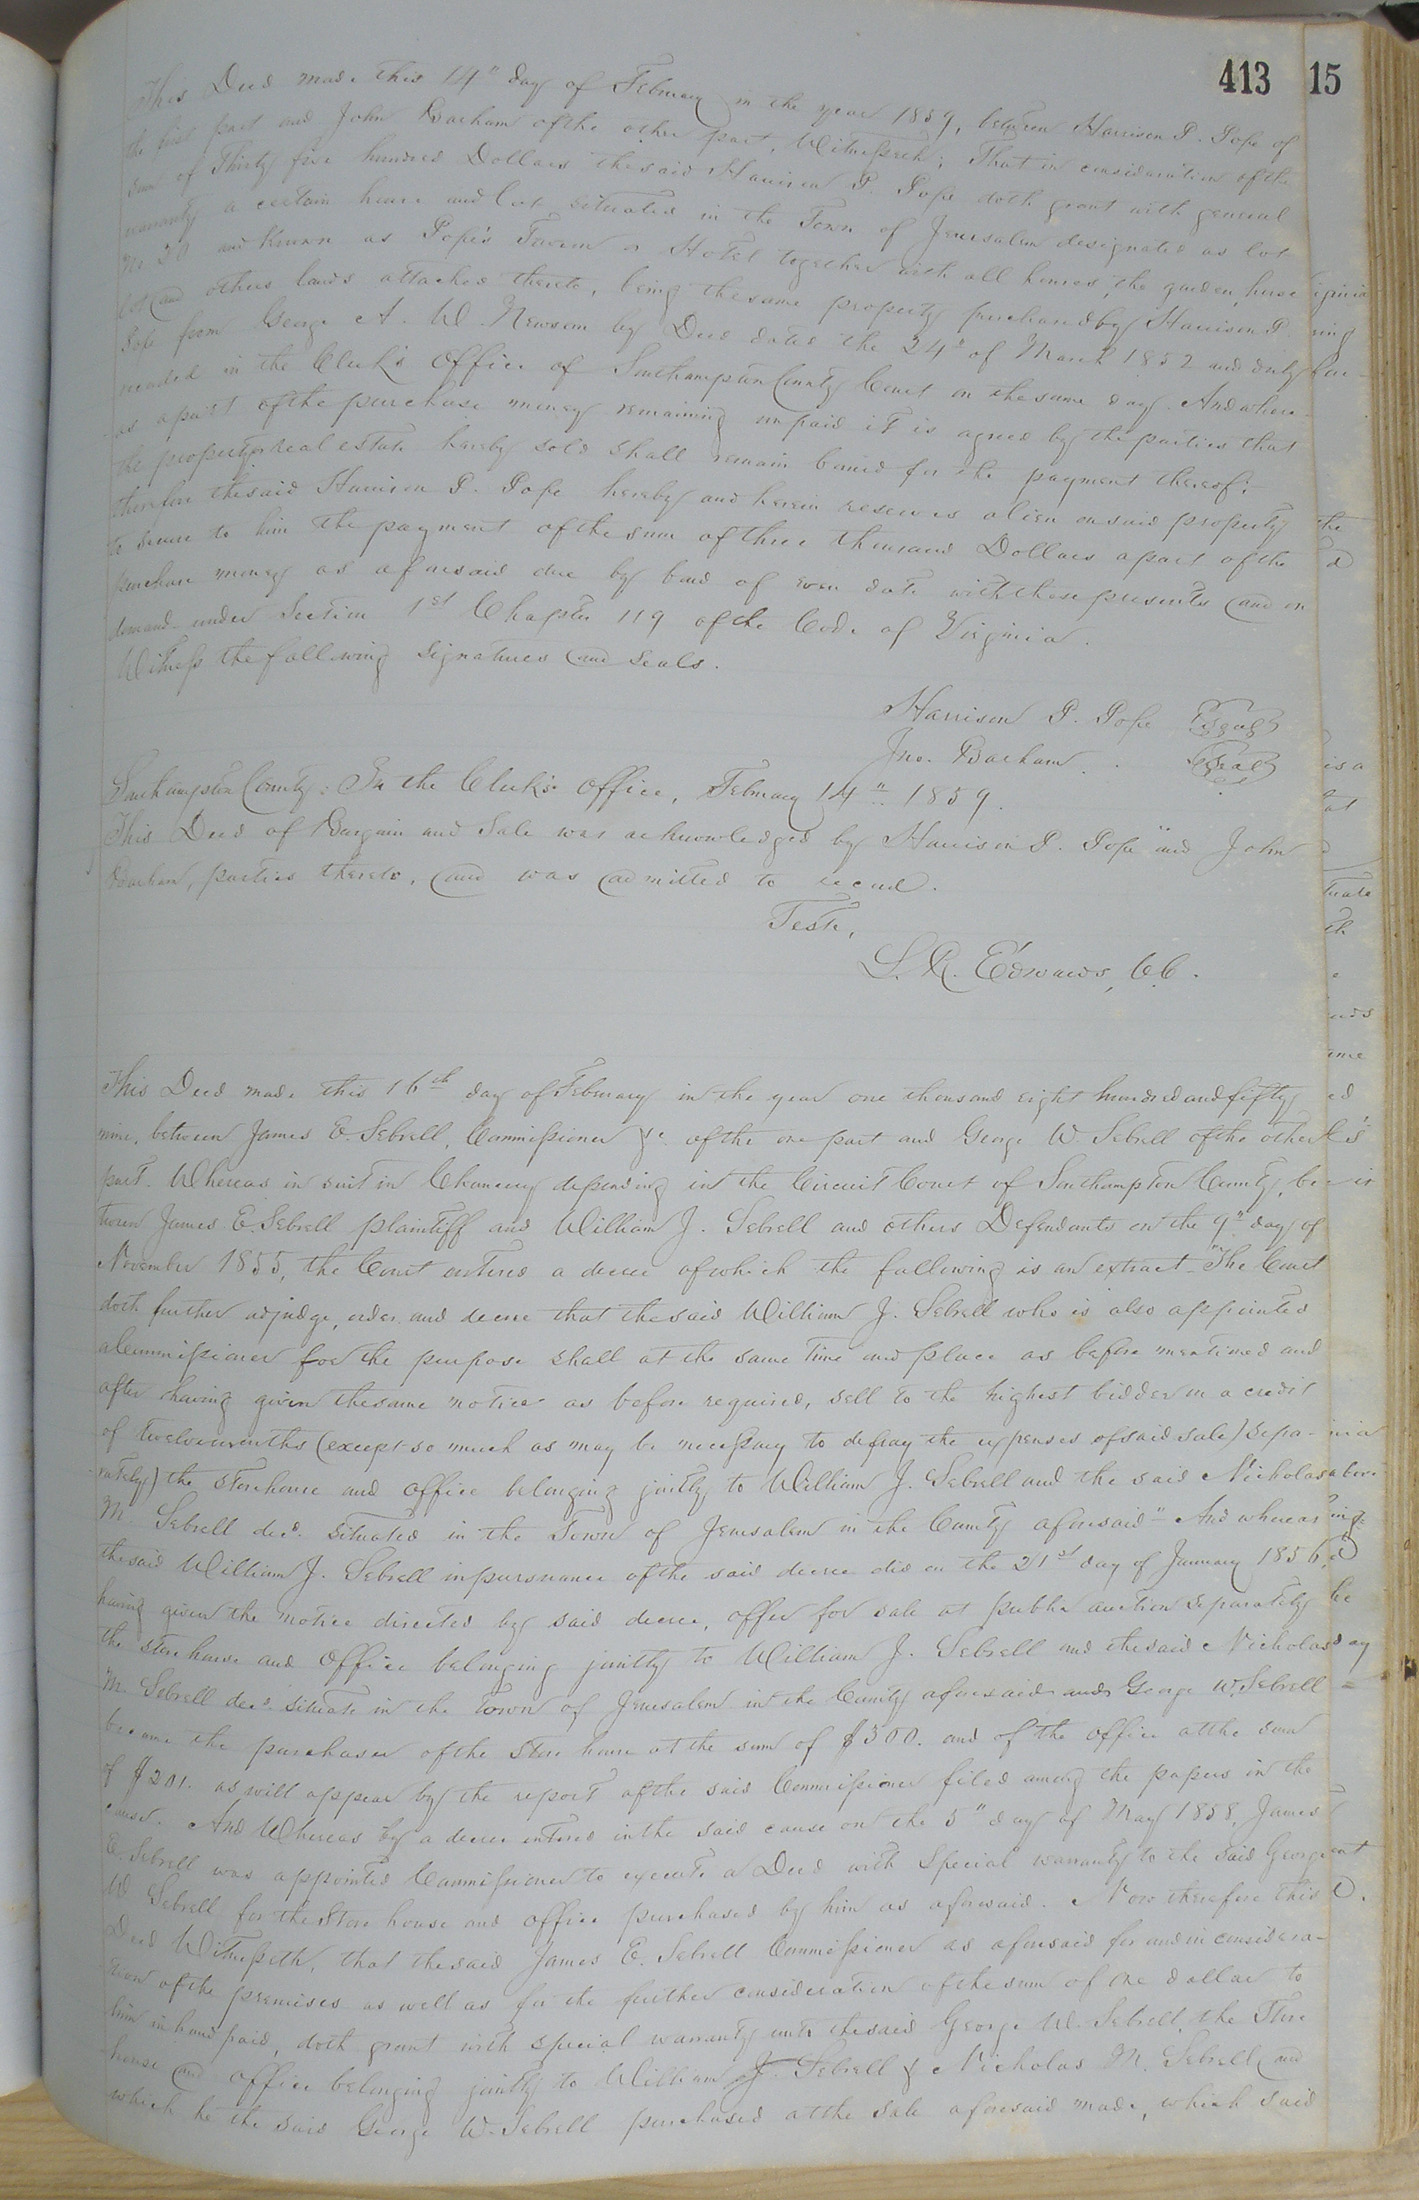 413 15
This Deed made this 14" day of February in the year 1859, between Harrison P. Pope of
the first part and John Barham of the other part, Witnesseth; That in consideration of the
sum of Thirty five hundred Dollars the said Harrison P. Pope doth grant with general
warranty a certain house and lot situated in the Town of Jerusalem designated as lot
No 30 and known as Pope's Tavern or Hotel together with all houses, the garden, horse
lot and others lands attached thereto, being the same property purchased by Harrison P.
Pope from George A. W. Newsom by Deed dated the 24" of March 1852 and duly
recorded in the Clerk's Office of Southampton County Court on the same day. And where-
as a part of the purchase money remaining unpaid it is agreed by the parties that
the property & real estate hereby sold shall remain bound for the payment thereof:
therefore the said Harrison P. Pope hereby and herein reserves a lien on said property
to secure to him the payment of the sum of three thousand Dollars a part of the
purchase money as aforesaid due by bond of even date with these presents and on
demand under Section 1st Chapter 119 of the Code of Virginia.
Witness the following signatures and seals.
Harrison P. Pope Seal
Jno. Barham . . Seal
Southampton County: In the Clerk's Office, February 14" 1859.
This Deed of Bargain and Sale was acknowledged by Harrison P. Pope and John
Barham, parties thereto, and was admitted to record.
Teste,
L. R. Edwards, C.C.
This Deed made this 16th day of February in the year one thousand eight hundred and fifty
nine, between James E. Sebrell, Commissioner &c. of the one part and George W. Sebrell of the other
part. Whereas in suit in Chancery depending in the Circuit Court of Southampton County, be-
tween James E. Sebrell plaintiff and William J. Sebrell and others Defendants on the 9" day of
November 1855, the Court entered a decree of which the following is an extract "The Court
doth further adjudge, order and decree that the said William J. Sebrell who is also appointed
a Commissioner for the purpose shall at the same time and place as before mentioned and
after having given the same notice as before required, sell to the highest bidder on a credit
of twelve months (except so much as may be necessary to defray the expenses of said sale) sepa-
rately) the storehouse and office belonging jointly to William J. Sebrell and the said Nicholas
M. Sebrell decd. situated in the Town of Jerusalem in the County aforesaid" And whereas
the said William J. Sebrell in pursuance of the said decree did on the 21st day of January 1856,
having given the notice directed by said decree, offer for sale at public auction separately
the store house and Office belonging jointly to William J. Sebrell and the said Nicholas
M. Sebrell decd. situate in the Town of Jerusalem in the County aforesaid and George W. Sebrell
became the purchaser of the Store house at the sum of $300. and of the office at the sum
of $201. as will appear by the report of the said Commissioner filed among the papers in the
cause. And Whereas by a decree entered in the said cause on the 5" day of May 1858, James
E. Sebrell was appointed Commissioner to execute a Deed with Special warranty to the said George
W. Sebrell for the Store house and office purchased by him as aforesaid. Now therefore this
Deed Witnesseth, that the said James E. Sebrell Commissioner as aforesaid for and in considera-
tion of the premises as well as for the further consideration of the sum of one dollar to
him in hand paid, doth grant with special warranty unto the said George W. Sebrell, the Store
house and office belonging jointly to William J. Sebrell & Nicholas M. Sebrell and
which he the said George W. Sebrell purchased at the sale aforesaid made, which said